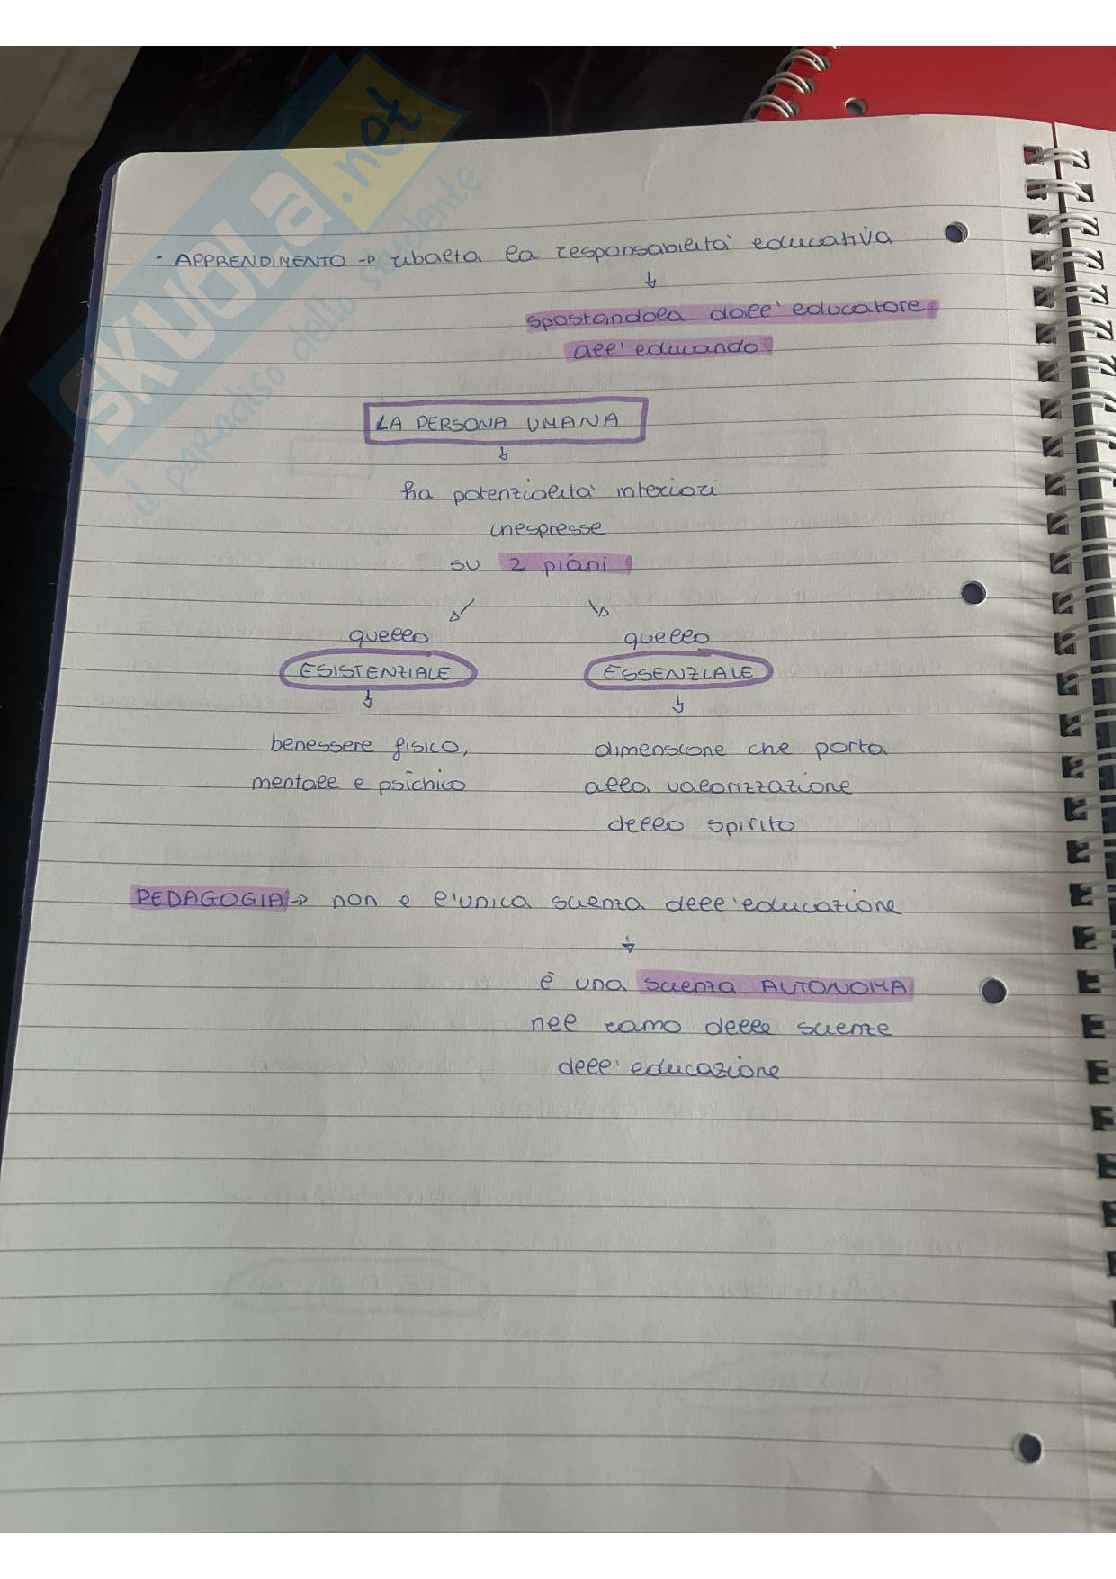 SKUOLA.net
il paradiso dello studente
· APPRENDIMENTO → ribalta la responsabilità educativa
↓
spostandola dall'educatore
all'educando
LA PERSONA UMANA
↓
ha potenzialità interiori
inespresse
su 2 piani
↙ ↘
quello quello
ESISTENZIALE ESSENZIALE
↓ ↓
benessere fisico, dimensione che porta
mentale e psichico alla valorizzazione
dello spirito
PEDAGOGIA → non è l'unica scienza dell'educazione
↓
è una scienza AUTONOMA
nel ramo delle scienze
dell'educazione